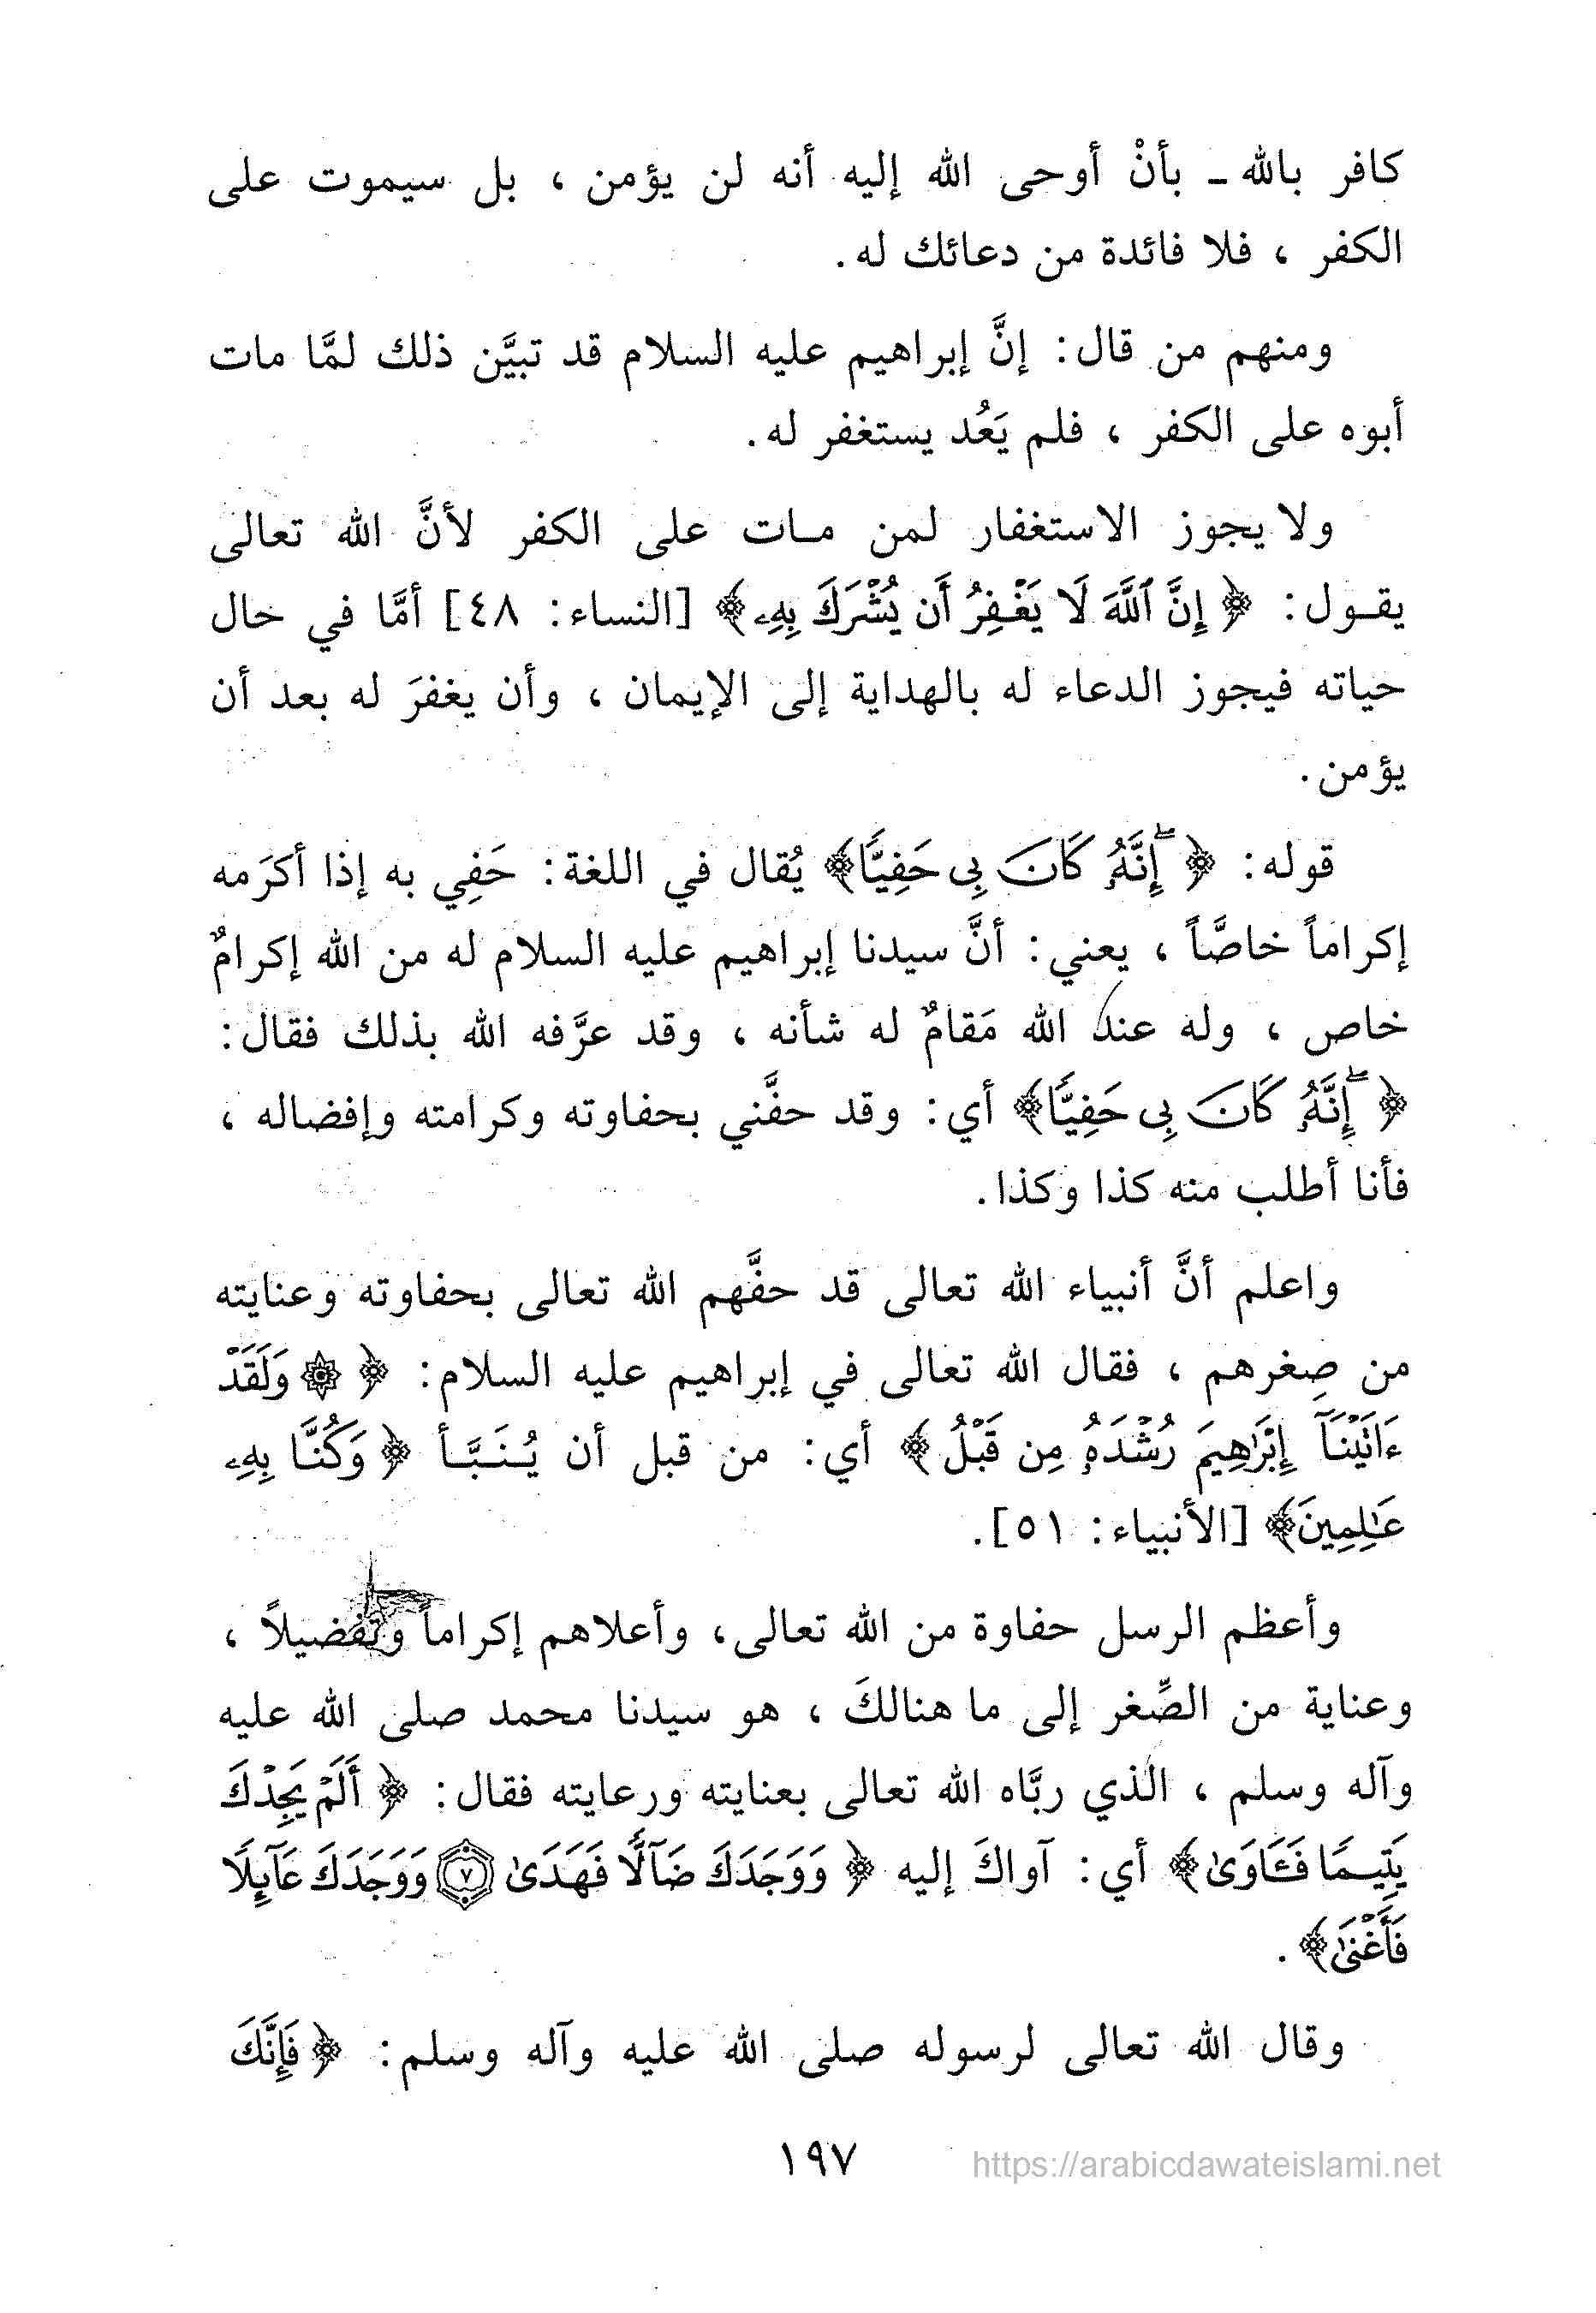 كافر بالله ـ بأنْ أوحى الله إليه أنه لن يؤمن ، بل سيموت على
الكفر ، فلا فائدة من دعائك له .
ومنهم من قال : إنَّ إبراهيم عليه السلام قد تبيَّن ذلك لمَّا مات
أبوه على الكفر ، فلم يَعُد يستغفر له .
ولا يجوز الاستغفار لمن مـات على الكفر لأنَّ الله تعالى
يقـول : ﴿ إِنَّ ٱللَّهَ لَا يَغْفِرُ أَن يُشْرَكَ بِهِۦ ﴾ [النساء : ٤٨] أمَّا في حال
حياته فيجوز الدعاء له بالهداية إلى الإيمان ، وأن يغفرَ له بعد أن
يؤمن .
قوله : ﴿ إِنَّهُۥ كَانَ بِى حَفِيًّا ﴾ يُقال في اللغة : حَفِي به إذا أكرَمه
إكراماً خاصَّاً ، يعني : أنَّ سيدنا إبراهيم عليه السلام له من الله إكرامٌ
خاص ، وله عند الله مَقامٌ له شأنه ، وقد عرَّفه الله بذلك فقال :
﴿ إِنَّهُۥ كَانَ بِى حَفِيًّا ﴾ أي : وقد حفَّني بحفاوته وكرامته وإفضاله ،
فأنا أطلب منه كذا وكذا .
واعلم أنَّ أنبياء الله تعالى قد حفَّهم الله تعالى بحفاوته وعنايته
من صِغرهم ، فقال الله تعالى في إبراهيم عليه السلام : ﴿ ۞ وَلَقَدْ
ءَاتَيْنَآ إِبْرَٰهِيمَ رُشْدَهُۥ مِن قَبْلُ ﴾ أي : من قبل أن يُـنَـبَّـأ ﴿ وَكُنَّا بِهِۦ
عَٰلِمِينَ ﴾ [الأنبياء : ٥١] .
وأعظم الرسل حفاوة من الله تعالى، وأعلاهم إكراماً وتفضيلاً ،
وعناية من الصِّغر إلى ما هنالكَ ، هو سيدنا محمد صلى الله عليه
وآله وسلم ، الذي ربَّاه الله تعالى بعنايته ورعايته فقال : ﴿ أَلَمْ يَجِدْكَ
يَتِيـمًا فَـَٔاوَىٰ ﴾ أي : آواكَ إليه ﴿ وَوَجَدَكَ ضَآلًّا فَهَدَىٰ ۝٧ وَوَجَدَكَ عَآئِلًا
فَأَغْنَىٰ ﴾ .
وقال الله تعالى لرسوله صلى الله عليه وآله وسلم : ﴿ فَإِنَّكَ
١٩٧
https://arabicdawateislami.net